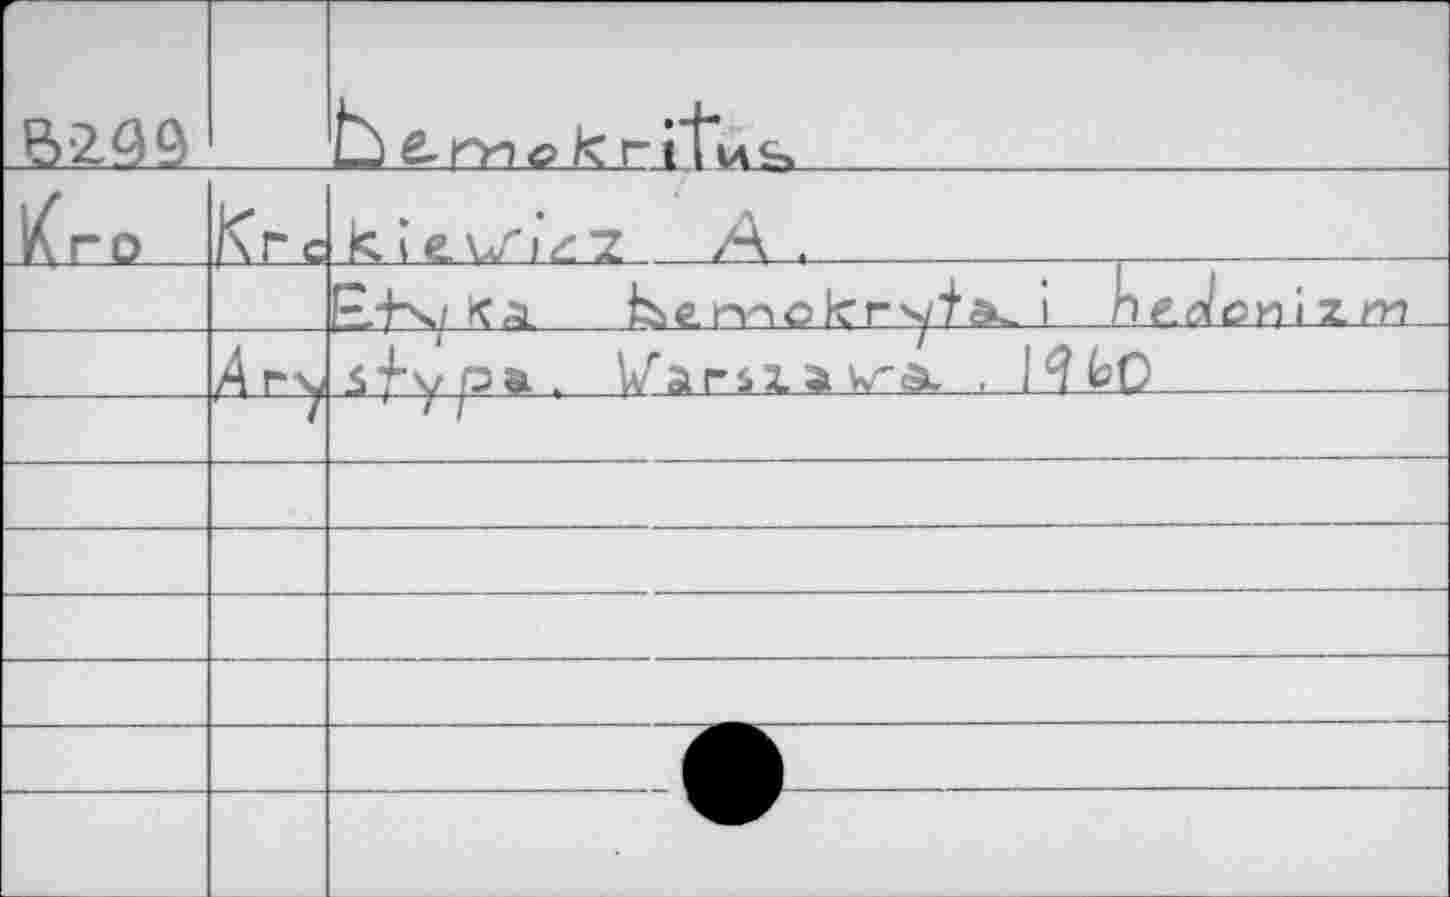 B299 Demokritus
Kro Krokiewicz A.
Etyka Demokryta i hedonizm
Arystypa. Warszawa. 1960